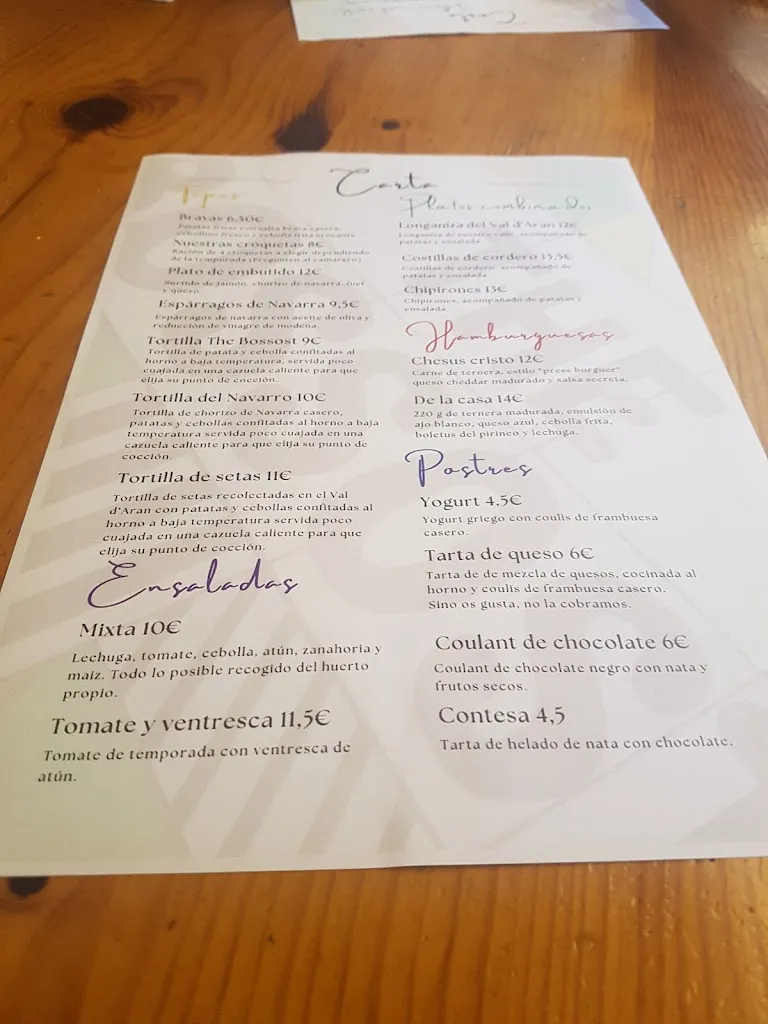 Carta
Bravas 6,50€
Patatas fritas con salsa brava casera,
cebollino fresco y cebolla frita crocante
Nuestras croquetas 8€
Ración de 4 croquetas a elegir dependiendo
de la temporada (Pregunten al camarero)
Plato de embutido 12€
Surtido de jamón, chorizo de navarra, fuet
y queso
Espárragos de Navarra 9,5€
Espárragos de navarra con aceite de oliva y
reducción de vinagre de modena.
Tortilla The Bossost 9€
Tortilla de patata y cebolla confitadas al
horno a baja temperatura, servida poco
cuajada en una cazuela caliente para que
elija su punto de cocción.
Tortilla del Navarro 10€
Tortilla de chorizo de Navarra casero,
patatas y cebollas confitadas al horno a baja
temperatura servida poco cuajada en una
cazuela caliente para que elija su punto de
cocción.
Tortilla de setas 11€
Tortilla de setas recolectadas en el Val
d'Aran con patatas y cebollas confitadas al
horno a baja temperatura servida poco
cuajada en una cazuela caliente para que
elija su punto de cocción.
Ensaladas
Mixta 10€
Lechuga, tomate, cebolla, atún, zanahoria y
maiz. Todo lo posible recogido del huerto
propio.
Tomate y ventresca 11,5€
Tomate de temporada con ventresca de
atún.
Platos combinados
Longaniza del Val d'Aran 12€
Longaniza de acompañado de
patatas y ensalada
Costillas de cordero 13,5€
Costillas de cordero, acompañado de
patatas y ensalada
Chipirones 13€
Chipirones, acompañado de patatas y
ensalada
Hamburguesas
Chesus cristo 12€
Carne de ternera, estilo "press burguer"
queso cheddar madurado y salsa secreta.
De la casa 14€
220 g de ternera madurada, emulsión de
ajo blanco, queso azul, cebolla frita,
boletus del pirinco y lechuga.
Postres
Yogurt 4,5€
Yogurt griego con coulis de frambuesa
casero.
Tarta de queso 6€
Tarta de de mezcla de quesos, cocinada al
horno y coulis de frambuesa casero.
Sino os gusta, no la cobramos.
Coulant de chocolate 6€
Coulant de chocolate negro con nata y
frutos secos.
Contesa 4,5
Tarta de helado de nata con chocolate.